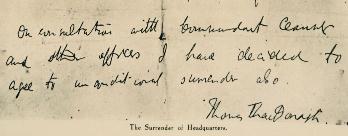 On consultation with Commandant Ceannt
and other officers I have decided to
agree to unconditional surrender also.
Thomas MacDonagh.
The Surrender of Headquarters.